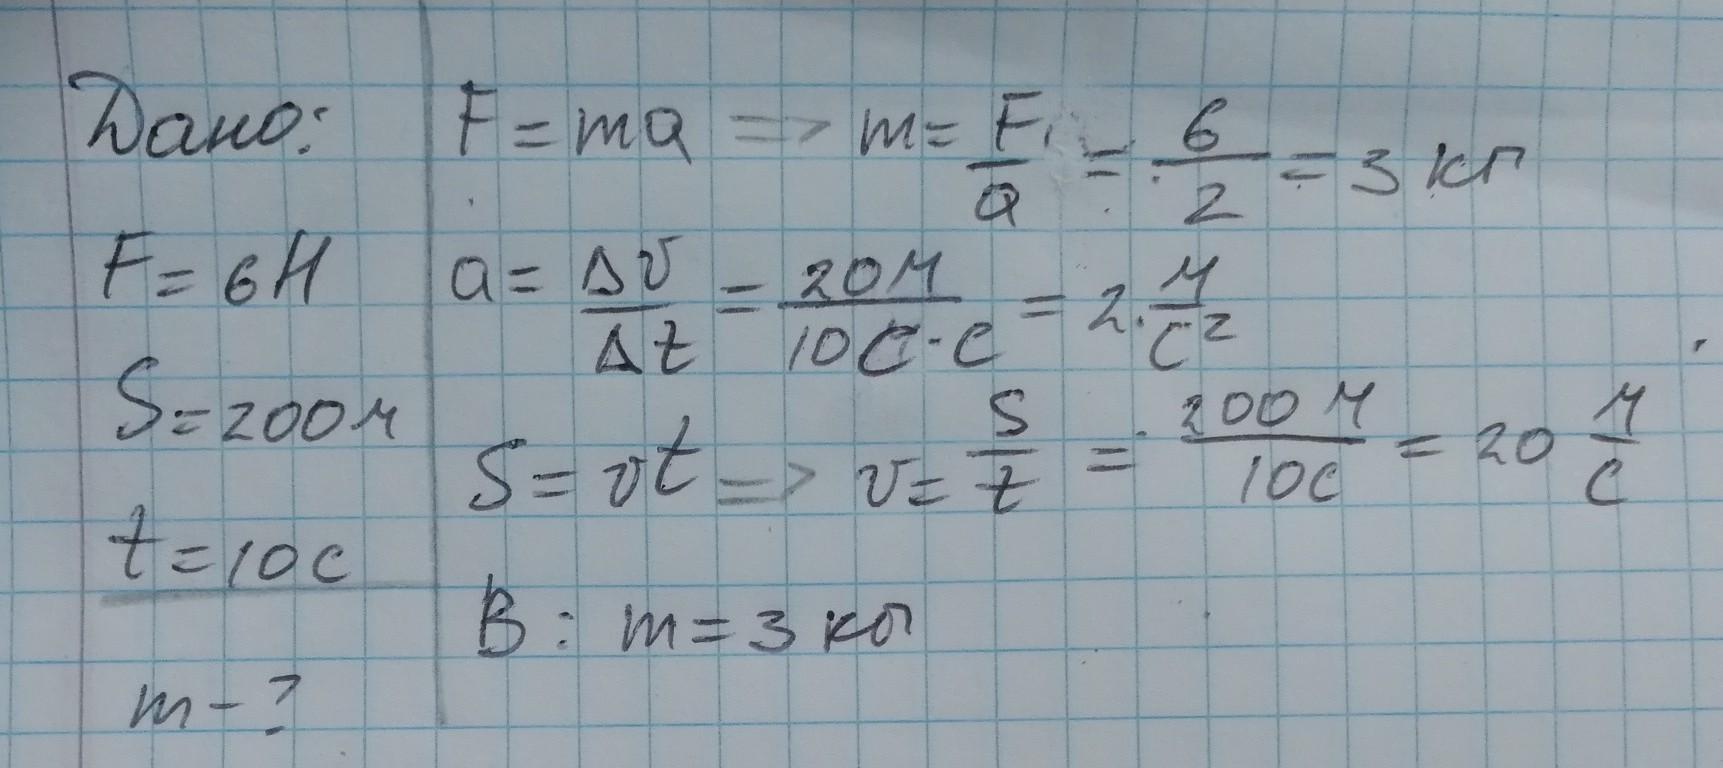 Дано:
F = 6Н
S = 200м
t = 10с
m - ?
F = ma => m = F/a = 6/2 = 3 кг
a = Δv/Δt = 20м/10с·с = 2 м/с²
S = vt => v = S/t = 200м/10с = 20 м/с
В: m = 3 кг